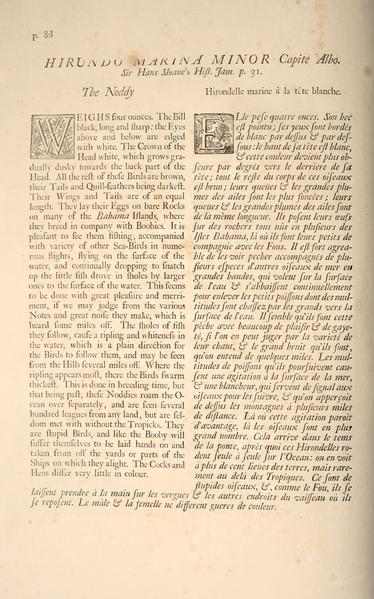 p. 88
HIRUNDO MARINA MINOR Capite Albo.
Sir Hans Sloane's Hist. Jam. p. 31.
The Noddy
WEIGHS four ounces. The Bill
black, long and sharp: the Eyes
above and below are edged
with white. The Crown of the
Head white, which grows gra-
dually dusky towards the back part of the
Head. All the rest of these Birds are brown,
their Tails and Quill-feathers being darkest.
Their Wings and Tails are of an equal
length. They lay their Eggs on bare Rocks
on many of the Bahama Islands, where
they breed in company with Boobies. It is
pleasant to see them fishing, accompanied
with variety of other Sea-Birds in nume-
rous flights, flying on the surface of the
water, and continually dropping to snatch
up the little fish drove in sholes by larger
ones to the surface of the water. This seems
to be done with great pleasure and merri-
ment, if we may judge from the various
Notes and great noise they make, which is
heard some miles off. The sholes of fish
they follow, cause a ripling and whiteness in
the water, which is a plain direction for
the Birds to follow them, and may be seen
from the Hills several miles off. Where the
ripling appears most, there the Birds swarm
thickest. This is done in breeding time, but
that being past, these Noddies roam the O-
cean over separately, and are seen several
hundred leagues from any land, but are sel-
dom met with without the Tropicks. They
are stupid Birds, and like the Booby will
suffer themselves to be laid hands on and
taken from off the yards or parts of the
Ships on which they alight. The Cocks and
Hens differ very little in colour.
Hirondelle marine à la tête blanche.
ELle pese quatre onces. Son bec
est pointu; ses yeux sont bordés
de blanc par dessus & par des-
sous: le haut de sa tête est blanc,
& cette couleur devient plus ob-
scure par degrés vers le derriere de sa
tête; tout le reste du corps de ces oiseaux
est brun; leurs queües & les grandes plu-
mes des ailes sont les plus foncées; leurs
queues & les grandes plumes des ailes sont
de la même longueur. Ils posent leurs œufs
sur des rochers tous nüs en plusieurs des
Isles Bahama, là où ils font leurs petits de
compagnie avec les Fous. Il est fort agrea-
ble de les voir pecher accompagnés de plu-
sieurs especes d'autres oiseaux de mer en
grandes bandes, qui volent sur la surface
de l'eau & s'abbaissent continuellement
pour enlever les petits poissons dont des mul-
titudes sont chassez par les grands vers la
surface de l'eau. Il semble qu'ils font cette
pêche avec beaucoup de plaisir & de gaye-
té, si l'on en peut juger par la varieté de
leur chant, & le grand bruit qu'ils font,
qu'on entend de quelques miles. Les mul-
titudes de poissons qu'ils poursuivent cau-
sent une agitation à la surface de la mer,
& une blancheur, qui servent de signal aux
oiseaux pour les suivre, & qu'on apperçoit
de dessus les montagnes à plusieurs miles
de distance. Là où cette agitation paroît
d'avantage, là les oiseaux sont en plus
grand nombre. Cela arrive dans le tems
de la ponte, après quoi ces Hirondelles ro-
dent seule à seule sur l'Ocean: on en voit
à plus de cent lieües des terres, mais rare-
ment au delà des Tropiques. Ce sont de
stupides oiseaux, &, comme le Fou, ils se
laissent prendre à la main sur les vergues & les autres endroits du vaisseau où ils
se reposent. Le mâle & la femelle ne different gueres de couleur.